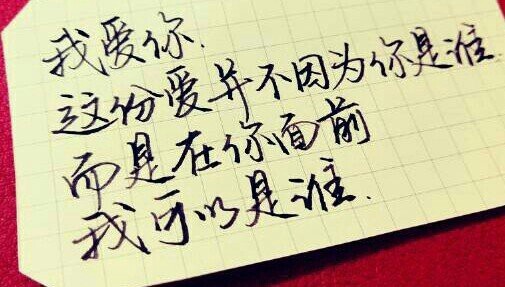 我爱你.
这份爱并不因为你是谁.
而是在你面前
我可以是谁.